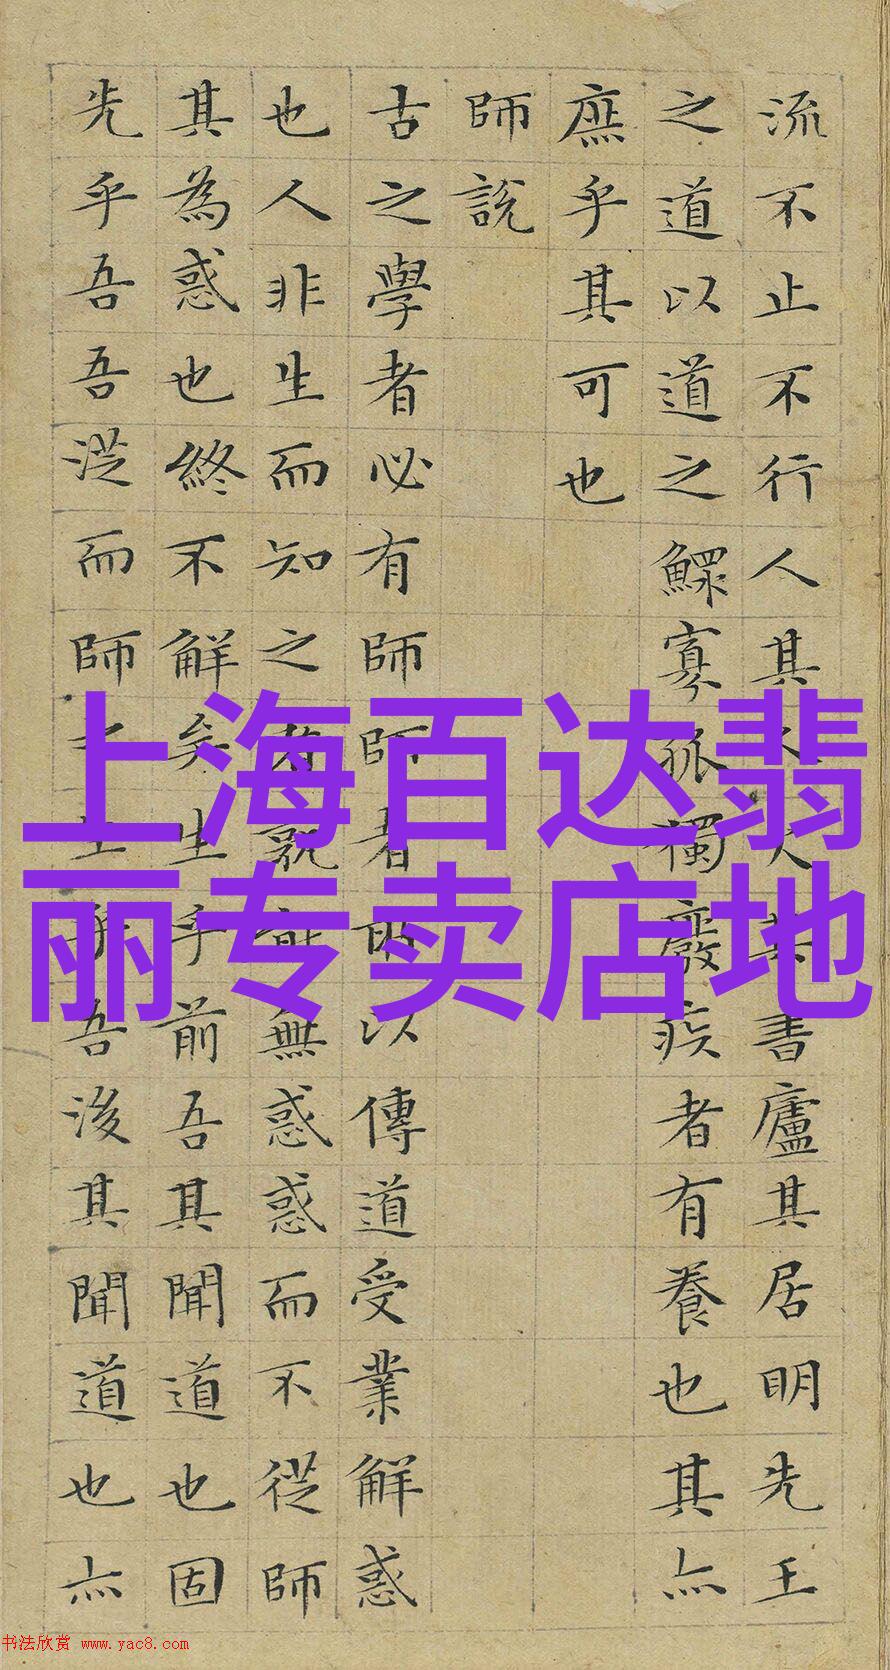 流不止不行人其人火其書廬其居明先王
之道以道之鰥寡孤獨廢疾者有養也其亦
庶乎其可也
師說
古之學者必有師師者所以傳道受業解惑
也人非生而知之者孰能無惑惑而不從師
其為惑也終不解矣生乎前吾其聞道也固
先乎吾吾從而師之生乎吾後其聞道也亦
上海百达翡
丽专卖店地
书法欣赏 www.yac8.com